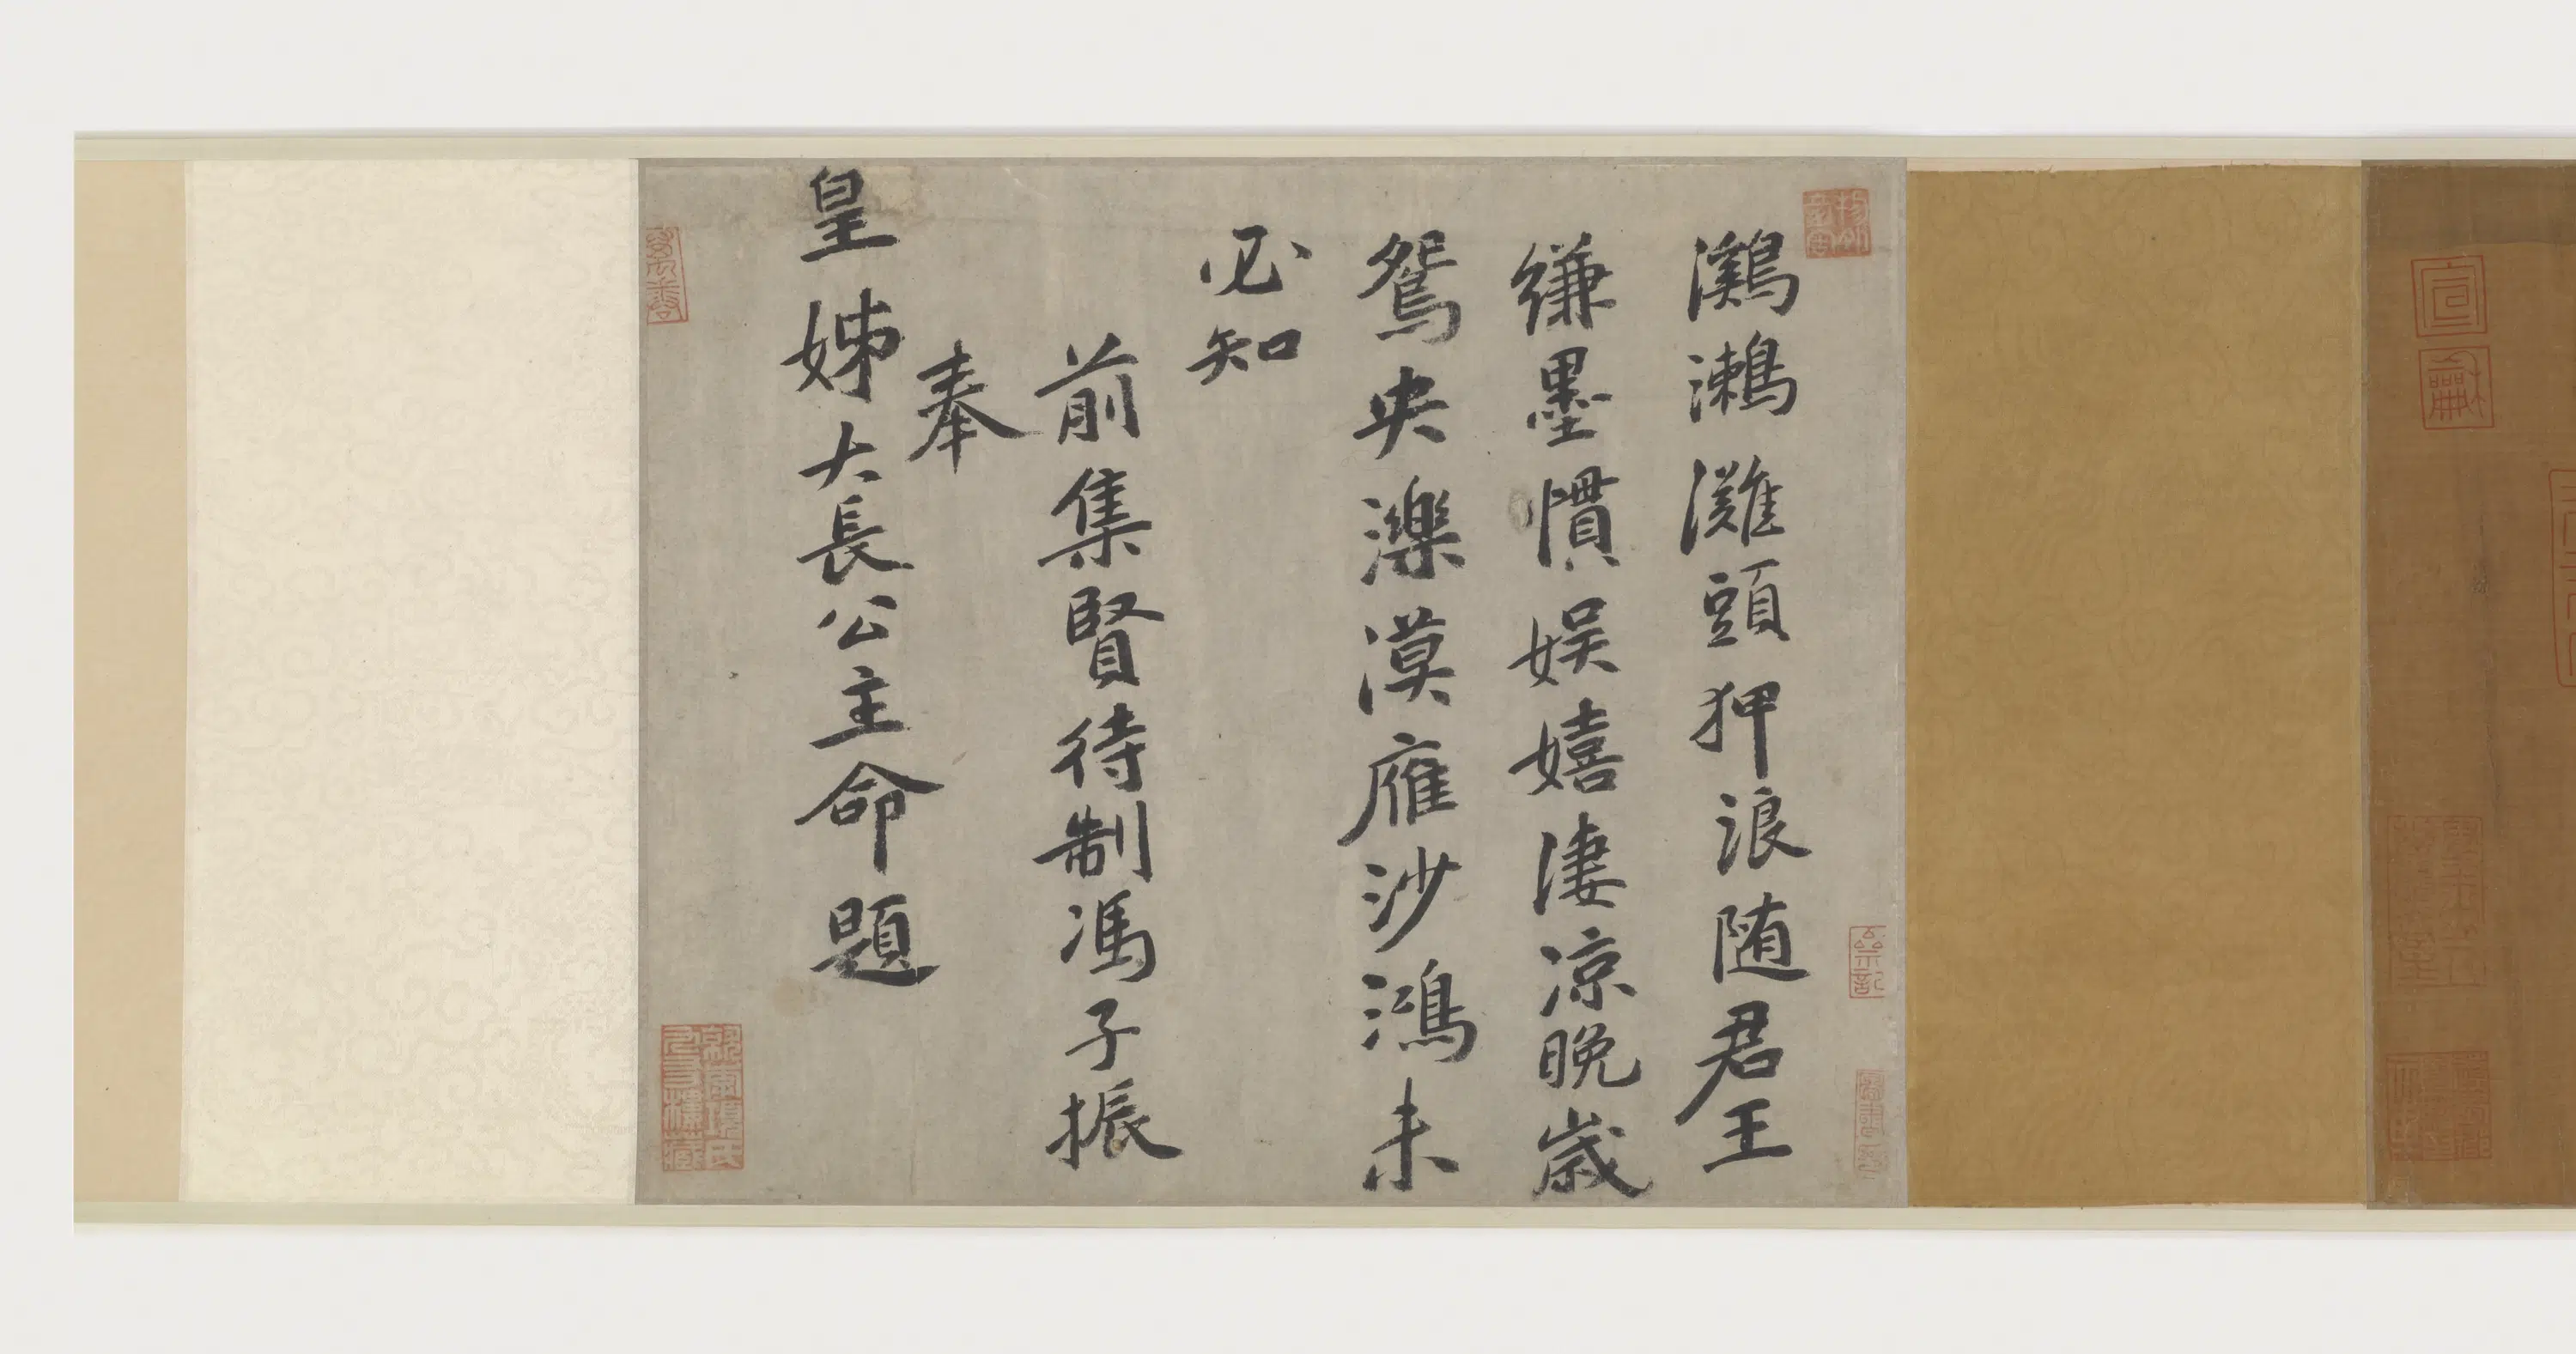 宣
龢
鸂鶒灘頭狎浪随君王
縑墨慣娱嬉淒涼晚歲
鴛央濼漠雁沙鴻未
必知
前集賢待制馮子振
奉
皇姊大長公主命題